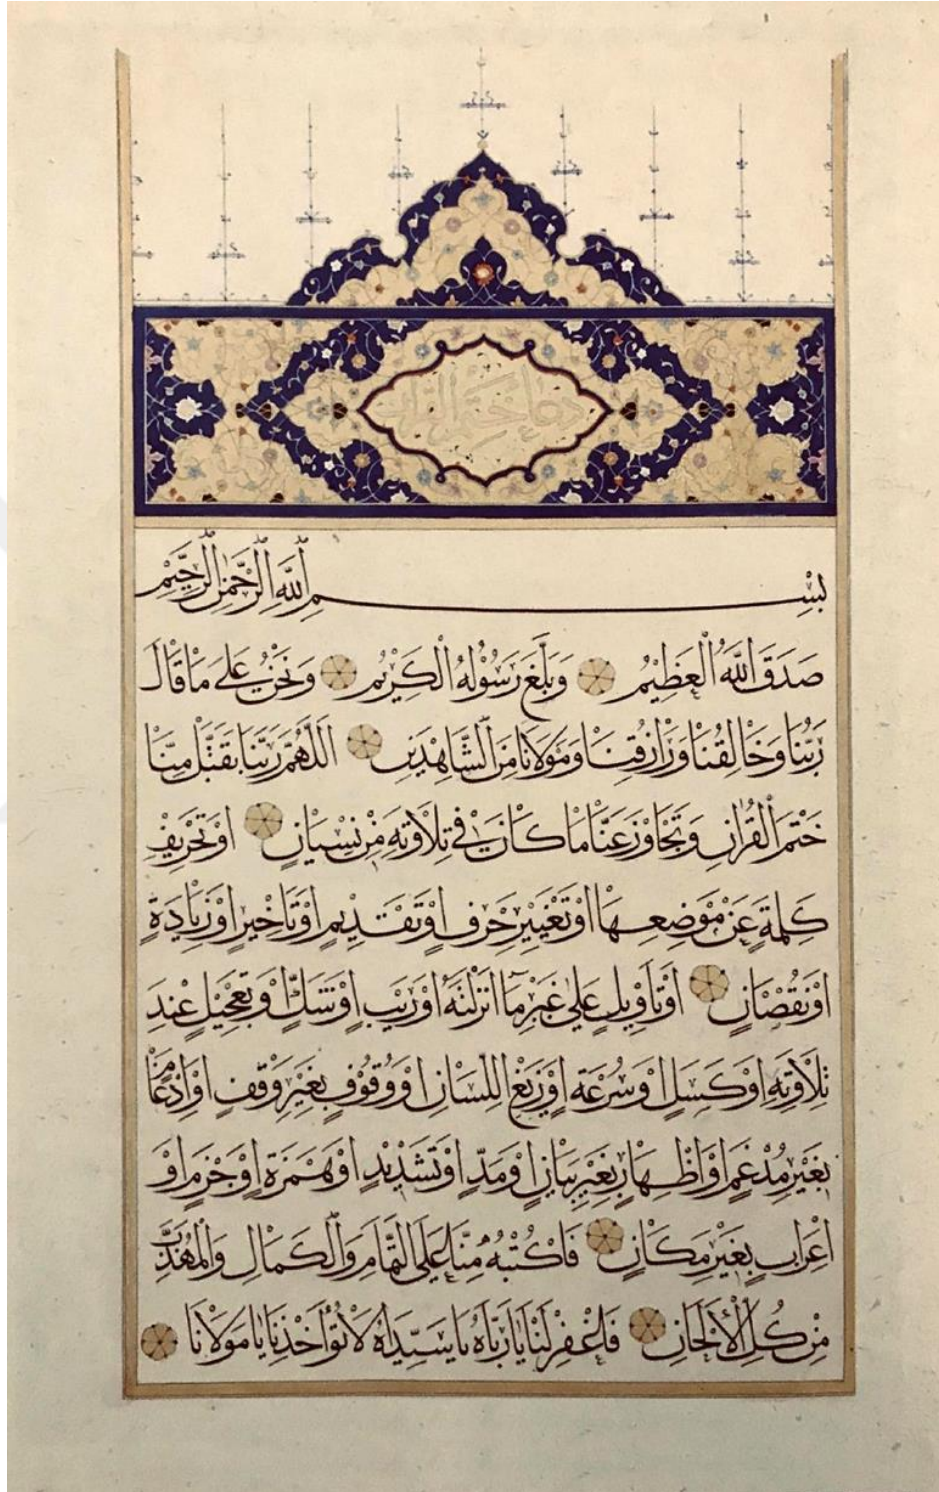 دعاء ختم القرآن
بِسْمِ اللّٰهِ الرَّحْمٰنِ الرَّحِيْمِ
صَدَقَ اللّٰهُ الْعَظِيْمُ وَبَلَّغَ رَسُوْلُهُ الْكَرِيْمِ وَنَحْنُ عَلٰى مَا قَالَ
رَبُّنَا وَخَالِقُنَا وَرَازِقُنَا وَمَوْلَانَا مِنَ الشَّاهِدِيْنَ اَللّٰهُمَّ رَبَّنَا تَقَبَّلْ مِنَّا
خَتْمَ الْقُرْاٰنِ وَتَجَاوَزْ عَنَّا مَا كَانَ فِيْ تِلَاوَتِهِ مِنْ نِسْيَانٍ اَوْ تَحْرِيْفِ
كَلِمَةٍ عَنْ مَوْضِعِهَا اَوْ تَغْيِيْرِ حَرْفٍ اَوْ تَقْدِيْمٍ اَوْ تَأْخِيْرٍ اَوْ زِيَادَةٍ
اَوْ نُقْصَانٍ اَوْ تَأْوِيْلٍ عَلٰى غَيْرِ مَا اَنْزَلْتَهُ اَوْ رَيْبٍ اَوْ شَكٍّ اَوْ تَعْجِيْلٍ عِنْدَ
تِلَاوَتِهِ اَوْ كَسَلٍ اَوْ سُرْعَةٍ اَوْ زَيْغِ اللِّسَانِ اَوْ وُقُوْفٍ بِغَيْرِ وَقْفٍ اَوْ اِدْغَامٍ
بِغَيْرِ مُدْغَمٍ اَوْ اِظْهَارٍ بِغَيْرِ بَيَانٍ اَوْ مَدٍّ اَوْ تَشْدِيْدٍ اَوْ هَمْزَةٍ اَوْ جَزْمٍ اَوْ
اِعْرَابٍ بِغَيْرِ مَكَانٍ فَاكْتُبْهُ مِنَّا عَلَى التَّمَامِ وَالْكَمَالِ وَالْمُهَذَّبِ
مِنْ كُلِّ الْاَلْحَانِ فَاغْفِرْ لَنَا يَا رَبَّاهُ يَا سَيِّدَاهُ لَا تُؤَاخِذْنَا يَا مَوْلَانَا